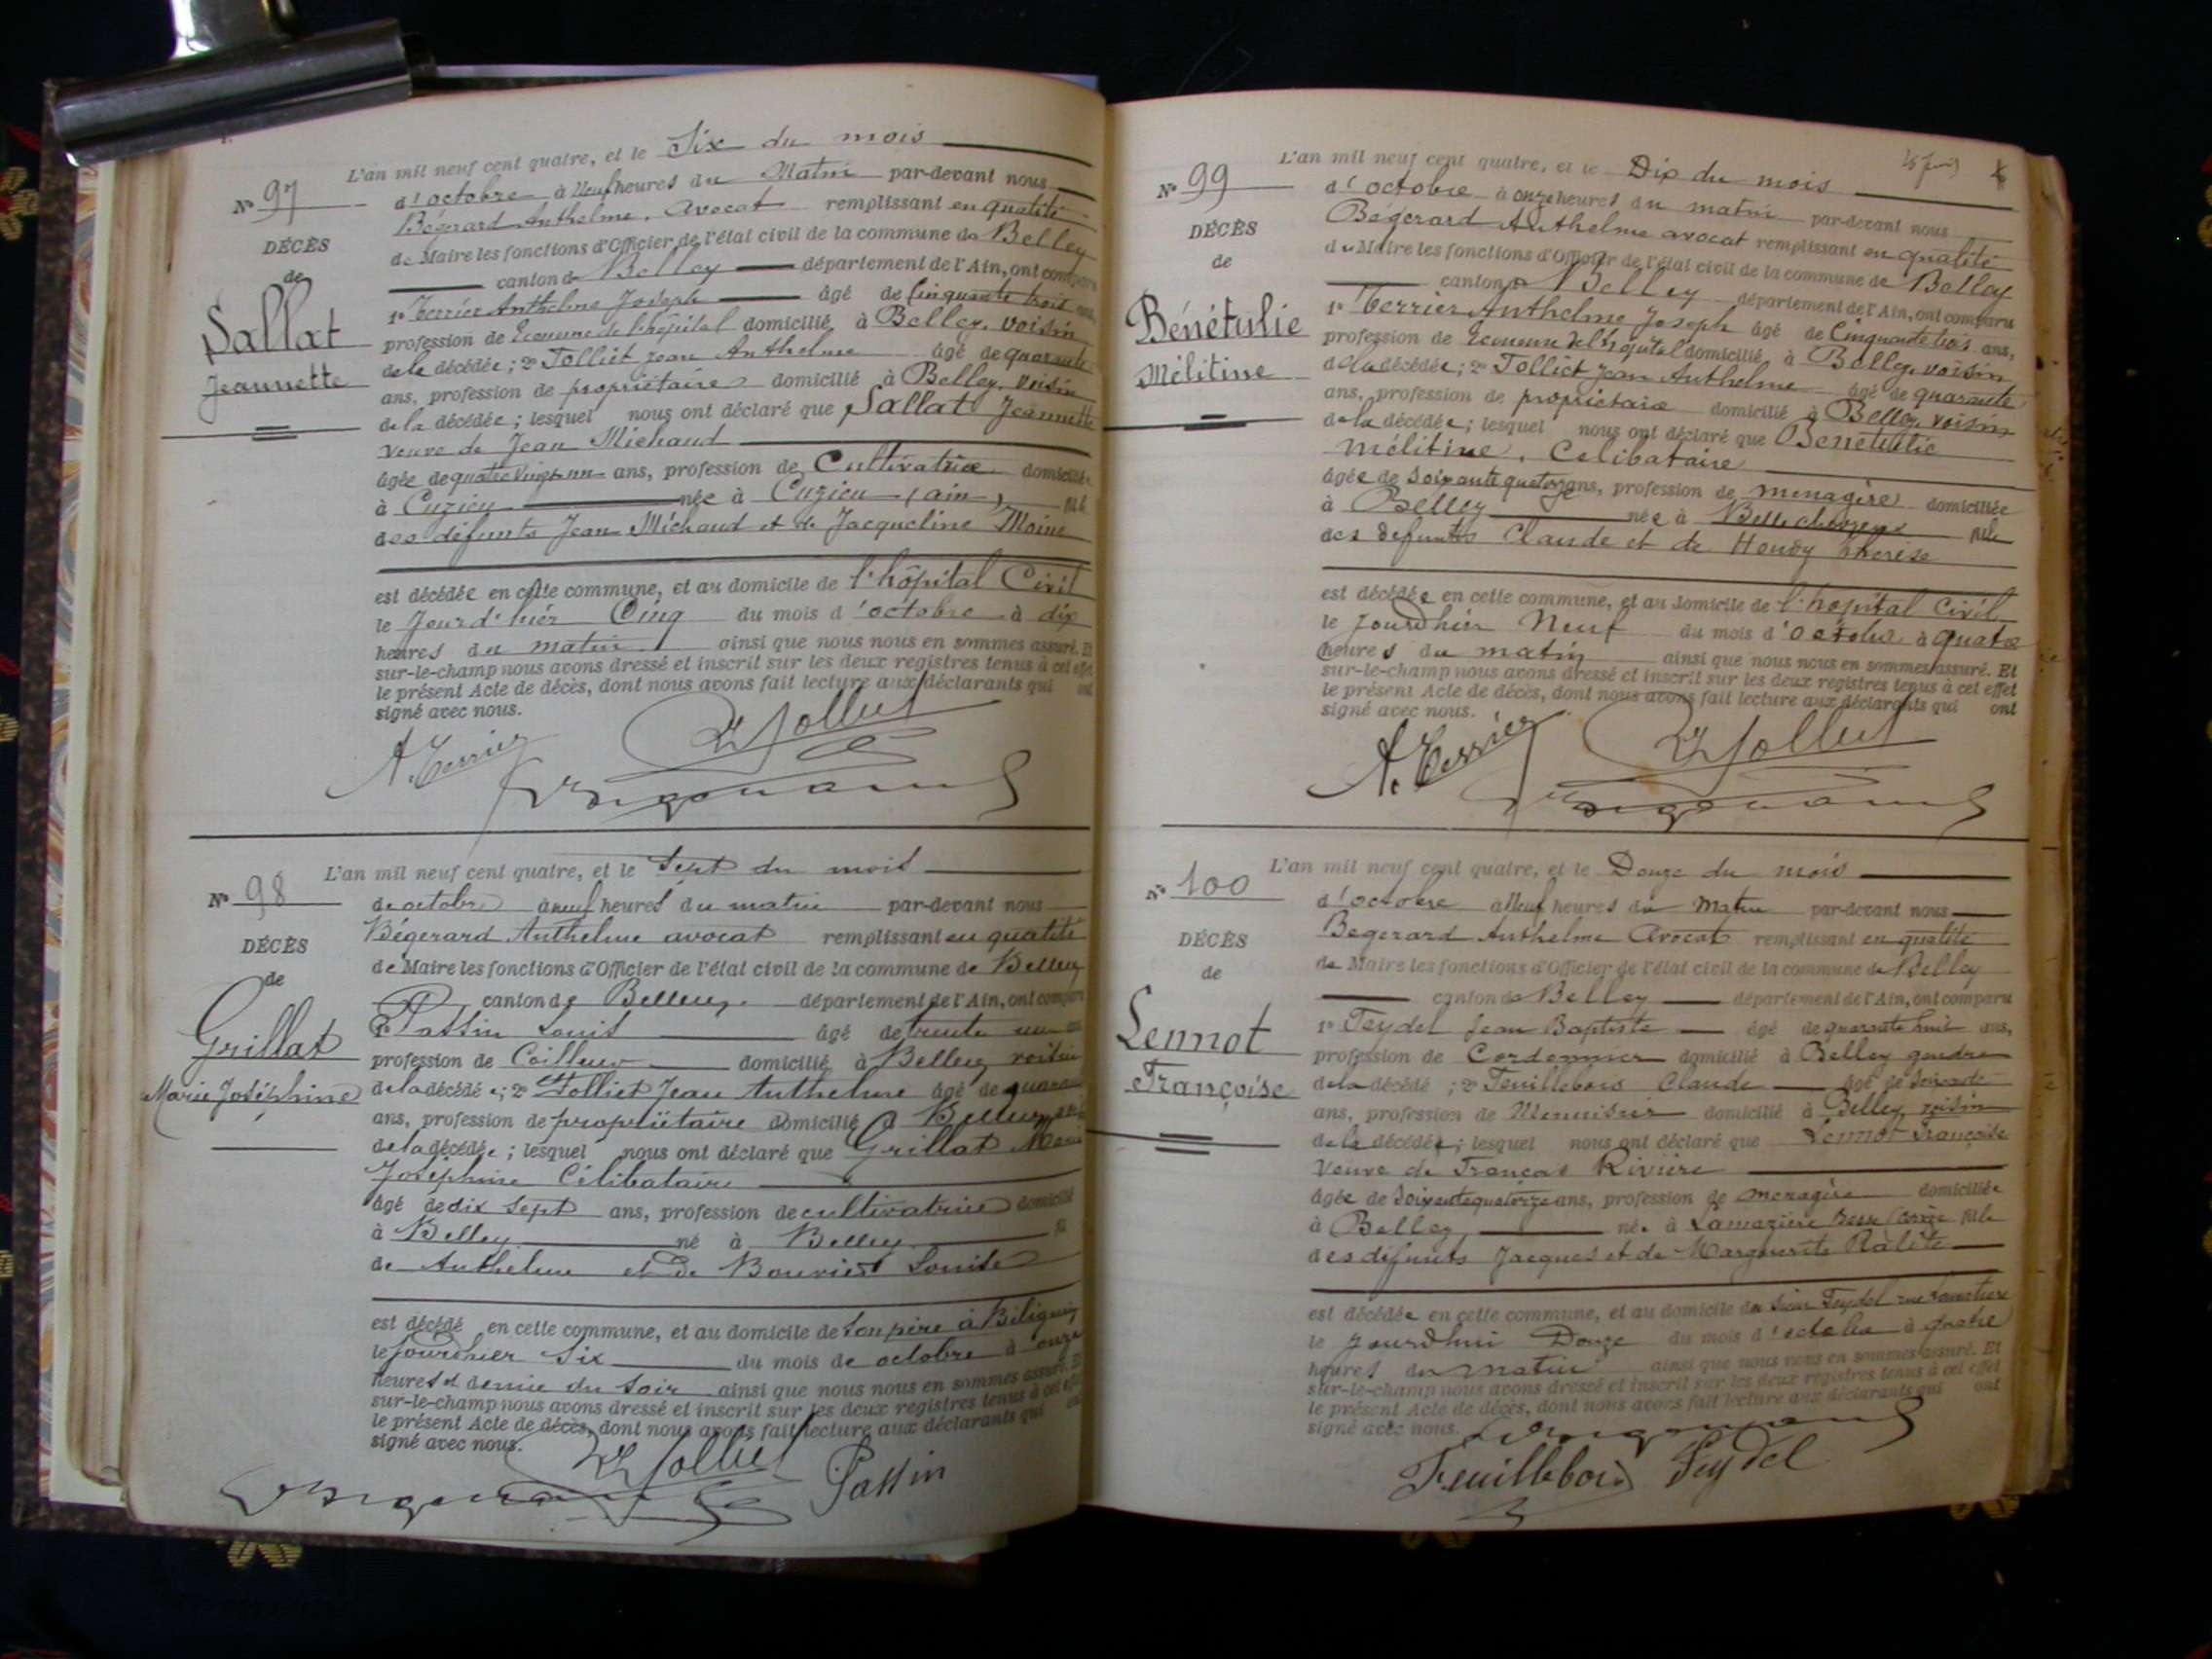 L'an mil neuf cent quatre, et le Six du mois
N° 97
d'octobre à Neuf heures du Matin par-devant nous
Bégerard Anthelme, Avocat remplissant en qualité
DÉCÈS
de Maire les fonctions d'Officier de l'état civil de la commune de Belley
de
canton de Belley département de l'Ain, ont comparu
Sallat
Jeannette
1° Terrier Anthelme Joseph âgé de Cinquante trois ans,
profession de Econome de l'hôpital domicilié à Belley, voisin
de la décédée; 2° Tolliet Jean Anthelme âgé de quarante
ans, profession de propriétaire domicilié à Belley, voisin
de la décédée; lesquel nous ont déclaré que Sallat Jeannette
veuve de Jean Michaud
âgée de quatre vingt un ans, profession de Cultivatrice domiciliée
à Cuzieu née à Cuzieu (ain) fille
des défunts Jean Michaud et de Jacqueline Moine
est décédée en cette commune, et au domicile de l'hôpital Civil
le Jourd'hier Cinq du mois d'octobre à dix
heures du matin ainsi que nous nous en sommes assuré. Et
sur-le-champ nous avons dressé et inscrit sur les deux registres tenus à cet effet
le présent Acte de décès, dont nous avons fait lecture aux déclarants qui ont
signé avec nous.
A. Terrier Tolliet
L'an mil neuf cent quatre, et le Sept du mois
N° 98
de octobre à neuf heures du matin par-devant nous
Bégerard Anthelme avocat remplissant en qualité
DÉCÈS
de Maire les fonctions d'Officier de l'état civil de la commune de Belley
de
canton de Belley département de l'Ain, ont comparu
Grillat
Marie Joséphine
1° Passin Louis âgé de trente un
profession de Coiffeur domicilié à Belley voisin
de la décédée; 2° Tolliet Jean Anthelme âgé de quarante
ans, profession de propriétaire domicilié à Belley
de la décédée; lesquel nous ont déclaré que Grillat Marie
Joséphine Célibataire
âgé de dix sept ans, profession de cultivatrice domicilié
à Belley né à Belley
de Anthelme et de Bouvier Louise
est décédé en cette commune, et au domicile de son père à Billignin
le jourd'hier Six du mois de octobre à onze
heures et demie du soir ainsi que nous nous en sommes assuré. Et
sur-le-champ nous avons dressé et inscrit sur les deux registres tenus à cet effet
le présent Acte de décès, dont nous avons fait lecture aux déclarants qui
signé avec nous.
Tolliet Passin
L'an mil neuf cent quatre, et le Dix du mois
N° 99
d'octobre à onze heures du matin par-devant nous
Bégerard Anthelme avocat remplissant en qualité
DÉCÈS
de Maire les fonctions d'Officier de l'état civil de la commune de Belley
de
canton de Belley département de l'Ain, ont comparu
Bénétulie
Mélitine
1° Terrier Anthelme Joseph âgé de Cinquante trois ans,
profession de Econome de l'hôpital domicilié à Belley, voisin
de la décédée; 2° Tolliet Jean Anthelme âgé de quarante
ans, profession de propriétaire domicilié à Belley, voisin
de la décédée; lesquel nous ont déclaré que Bénétulie
Mélitine, Célibataire
âgée de soixante quatorze ans, profession de menagère domiciliée
à Belley née à fille
des défunts Claude et de Thérèse
est décédée en cette commune, et au domicile de l'hopital Civil
le jourdhier Neuf du mois d'octobre à quatre
heures du matin ainsi que nous nous en sommes assuré. Et
sur-le-champ nous avons dressé et inscrit sur les deux registres tenus à cet effet
le présent Acte de décès, dont nous avons fait lecture aux déclarants qui ont
signé avec nous.
A. Terrier Tolliet
L'an mil neuf cent quatre, et le Douze du mois
N° 100
d'octobre à Neuf heures du Matin par-devant nous
Bégerard Anthelme Avocat remplissant en qualité
DÉCÈS
de Maire les fonctions d'Officier de l'état civil de la commune de Belley
de
canton de Belley département de l'Ain, ont comparu
Lennot
Françoise
1° Feydel Jean Baptiste âgé de quarante huit ans,
profession de Cordonnier domicilié à Belley gendre
de la décédé; 2° Feuillebois Claude âgé de soixante
ans, profession de Menuisier domicilié à Belley, voisin
de la décédée; lesquel nous ont déclaré que Lennot Françoise
veuve de François Rivière
âgée de soixante quatorze ans, profession de menagère domiciliée
à Belley, née à Lamazière fille
des défunts Jacques et de Marguerite Ralite
est décédée en cette commune, et au domicile du sieur Feydel rue
le jourdhui Douze du mois d'octobre à quatre
heures du matin ainsi que nous nous en sommes assuré. Et
sur-le-champ nous avons dressé et inscrit sur les deux registres tenus à cet effet
le présent Acte de décès, dont nous avons fait lecture aux déclarants qui ont
signé avec nous.
Feuillebois Feydel